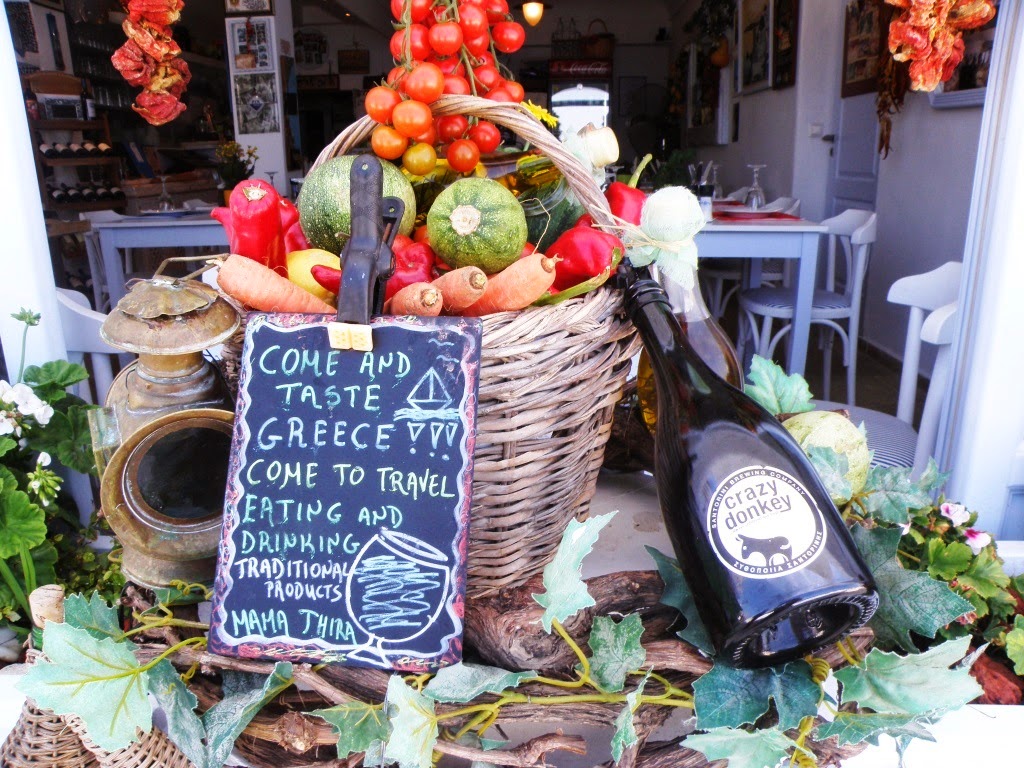 COME AND
TASTE
GREECE !!!
COME TO TRAVEL
EATING AND
DRINKING
TRADITIONAL
PRODUCTS
MAMA THIRA
SANTORINI BREWING COMPANY
crazy
donkey
ΖΥΘΟΠΟΙΙΑ ΣΑΝΤΟΡΙΝΗΣ
Coca-Cola